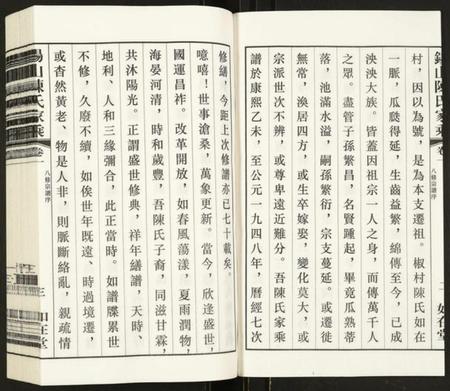 錫山陳氏家乘
卷一
八修宗譜序
村，因以為號，是為本支遷祖。椒村陳氏如在
一脈，瓜瓞得延，生齒益繁，綿傳至今，已成
泱泱大族。皆蓋因祖宗一人之身，而傳萬千人
之眾。盡管子孫繁昌，名賢踵起，畢竟瓜熟蒂
落，池滿水溢，嗣孫繁衍，宗支蔓延。或遷徙
無常，渙居四方，或生卒嫁娶，變化莫大，或
宗派世次不辨，或尊卑遠近難分。吾陳氏家乘
譜於康熙乙未，至公元一九四八年，曆經七次
修繕，今距上次修譜亦已七十載矣。
噫嘻！世事滄桑，萬象更新。當今，欣逢盛世，
國運昌祚。改革開放，如春風蕩漾，夏雨潤物，
海晏河清，時和歲豐，吾陳氏子裔，同滋甘霖，
共沐陽光。正謂盛世修典，祥年繕譜，天時、
地利、人和三緣彌合，此正當時。如譜牒累世
不修，久廢不續，如俟世年既遠、時過境遷，
或杳然黃老、物是人非，則脈斷絡亂，親疏情
錫山陳氏家乘
卷一
八修宗譜序
三